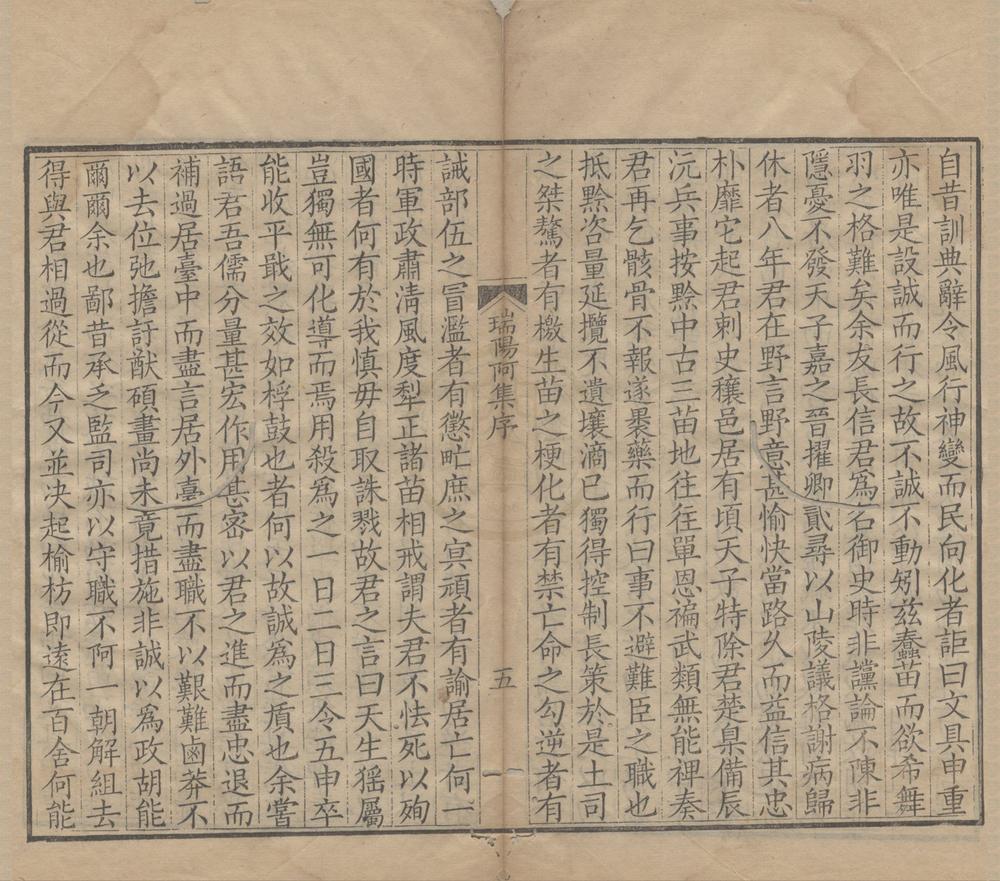 自昔訓典辭令風行神變而民向化者詎曰文具申重
亦唯是設誠而行之故不誠不動矧茲蠢苗而欲希舞
羽之格難矣余友長信君為名御史時非讜論不陳非
隱憂不發天子嘉之晉擢卿貳尋以山陵議格謝病歸
休者八年君在野言野意甚愉快當路久而益信其忠
朴靡它起君刺史穰邑居有頃天子特除君楚臬備辰
沅兵事按黔中古三苗地往往單恩褊武類無能裨奏
君再乞骸骨不報遂褁藥而行曰事不避難臣之職也
抵黔咨量延攬不遺壤滴已獨得控制長策於是土司
之桀驁者有檄生苗之梗化者有禁亡命之勾逆者有
瑞陽阿集序
五
誡部伍之冒濫者有懲甿庶之冥頑者有諭居亡何一
時軍政肅清風度犁正諸苗相戒謂夫君不怯死以殉
國者何有於我慎毋自取誅戮故君之言曰天生猺屬
豈獨無可化導而焉用殺為之一日二日三令五申卒
能收平戢之效如桴鼓也者何以故誠為之質也余嘗
語君吾儒分量甚宏作用甚密以君之進而盡忠退而
補過居臺中而盡言居外臺而盡職不以艱難鹵莽不
以去位弛擔訏猷碩畫尚未竟措施非誠以為政胡能
爾爾余也鄙昔承乏監司亦以守職不阿一朝解組去
得與君相過從而今又並決起榆枋即遠在百舍何能